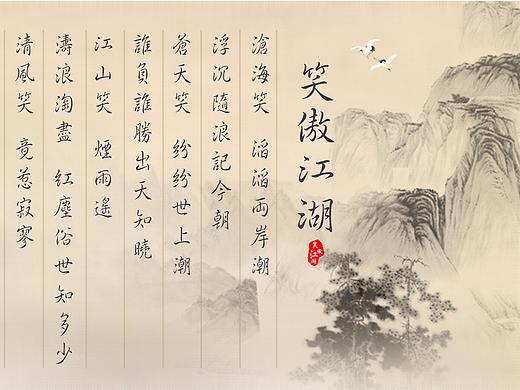 笑傲江湖
滄海笑 滔滔両岸潮
浮沉隨浪記今朝
蒼天笑 紛紛世上潮
誰負誰勝出天知曉
江山笑 煙雨遙
濤浪淘盡 紅塵俗世知多少
清風笑 竟惹寂寥